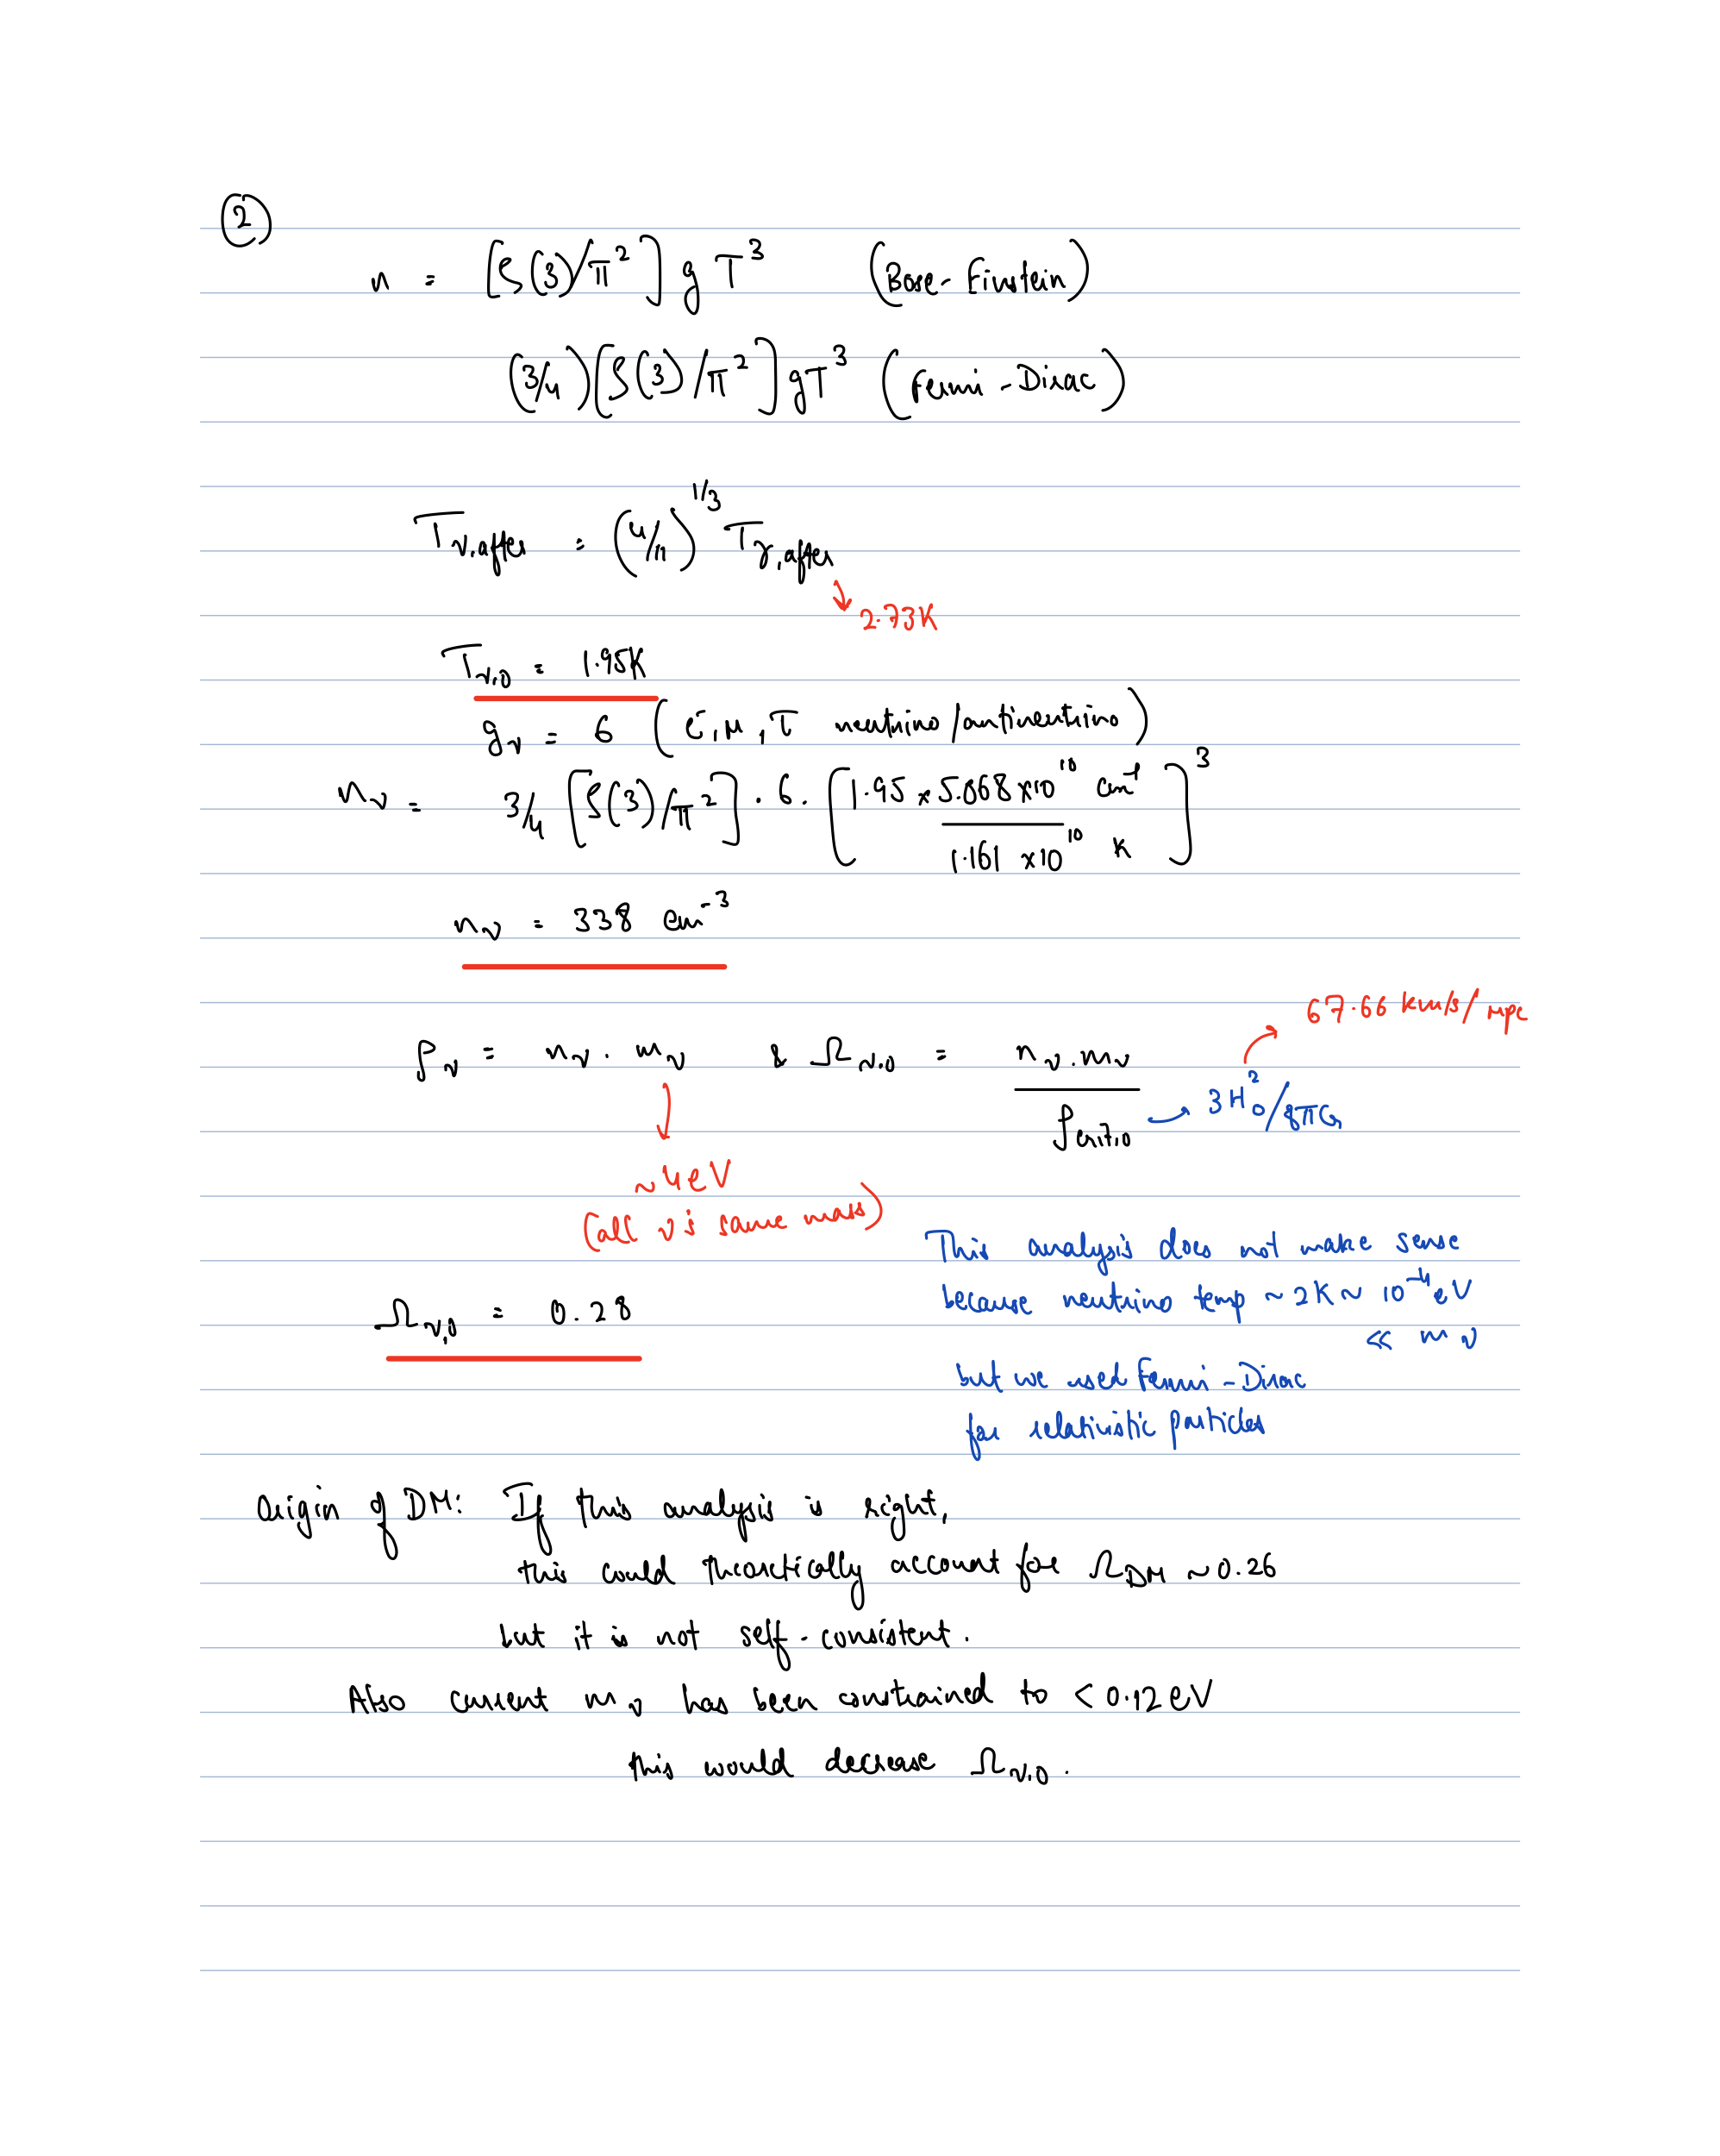 ②
n = [ζ(3)/π²] g T³ (Bose-Einstein)
(3/4)[ζ(3)/π²] g T³ (Fermi-Dirac)
T_ν,after = (4/11)^1/3 T_γ,after
→ 2.73K
T_ν,0 = 1.95K
g_ν = 6 (e, μ, τ neutrino/antineutrino)
n_ν = 3/4 [ζ(3)/π²] . 6 . [1.95 × 5.068 ×10¹⁰ cm⁻¹ / 1.161 ×10¹⁰ K]³
n_ν = 338 cm⁻³
→ 67.66 km/s/Mpc
ρ_ν = n_ν . m_ν & Ω_ν,0 = n_ν . m_ν / ρ_crit,0 → 3H₀²/8πG
~4eV
(all ν's same mass)
This analysis does not make sense
because neutrino temp ~ 2K ~ 10⁻⁴ eV
<< m_ν
Ω_ν,0 = 0.28
but we used Fermi-Dirac
for relativistic particles
Origin of DM: If this analysis is right,
this could theoretically account for Ω_DM ~ 0.26
but it is not self-consistent.
Also current m_ν has been constrained to < 0.12 eV
this would decrease Ω_ν,0.